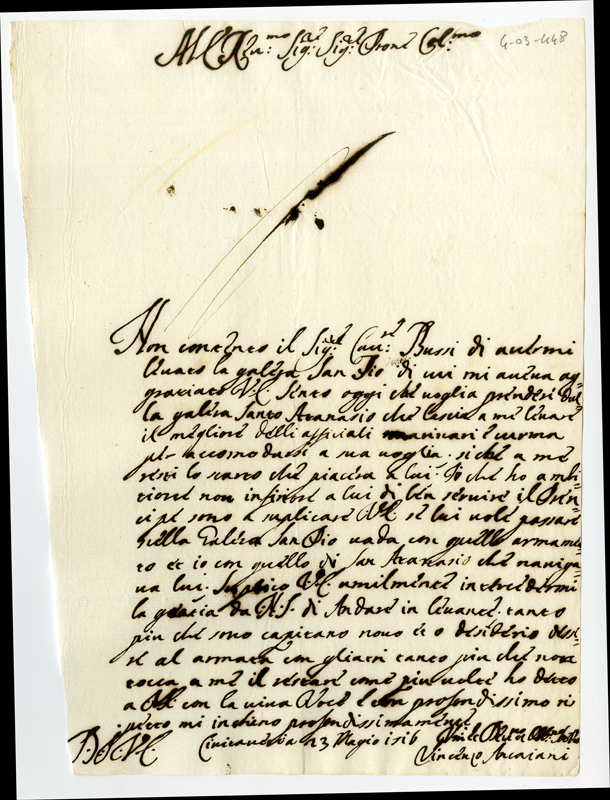 Ill.mo Rev.mo Sig.re Sig.re Prone Col.mo
4-03-448
Non contento il Sig.re Cau.re Bussi di auermi
leuato la galera San Pio di cui mi aueua ag-
gratiato V.E. sento oggi che voglia prendersi dal-
la galera Santo Atanasio che lascia a me leuare
il megliore delli officiali marinari e ciurma
per accomodarsi a sua voglia. si che a me
resti lo scarto che piacera a lui. Io che ho ambi-
tione non inferiore a lui di ben seruire il Pren-
cipe sono a suplicare V.E. se lui vole passare
nella Galera San Pio vada con quello armamen-
to et io con quello di San Atanasio che nauiga-
ua lui. Suplico V.E. umilmente intercedermi
la gratia da N.S. di Andare in leuante. tanto
piu che sono capitano nouo et o desiderio
se al armata con gliatri tanto piu che non
tocca a me il restare come piu volte ho detto
a V.E. con la viua Voce e con profondissimo ri
spetto mi inchino profondissimamente
D.S.V.E. Ciuitauechia 23 Magio
Vincenzo Ancaiani